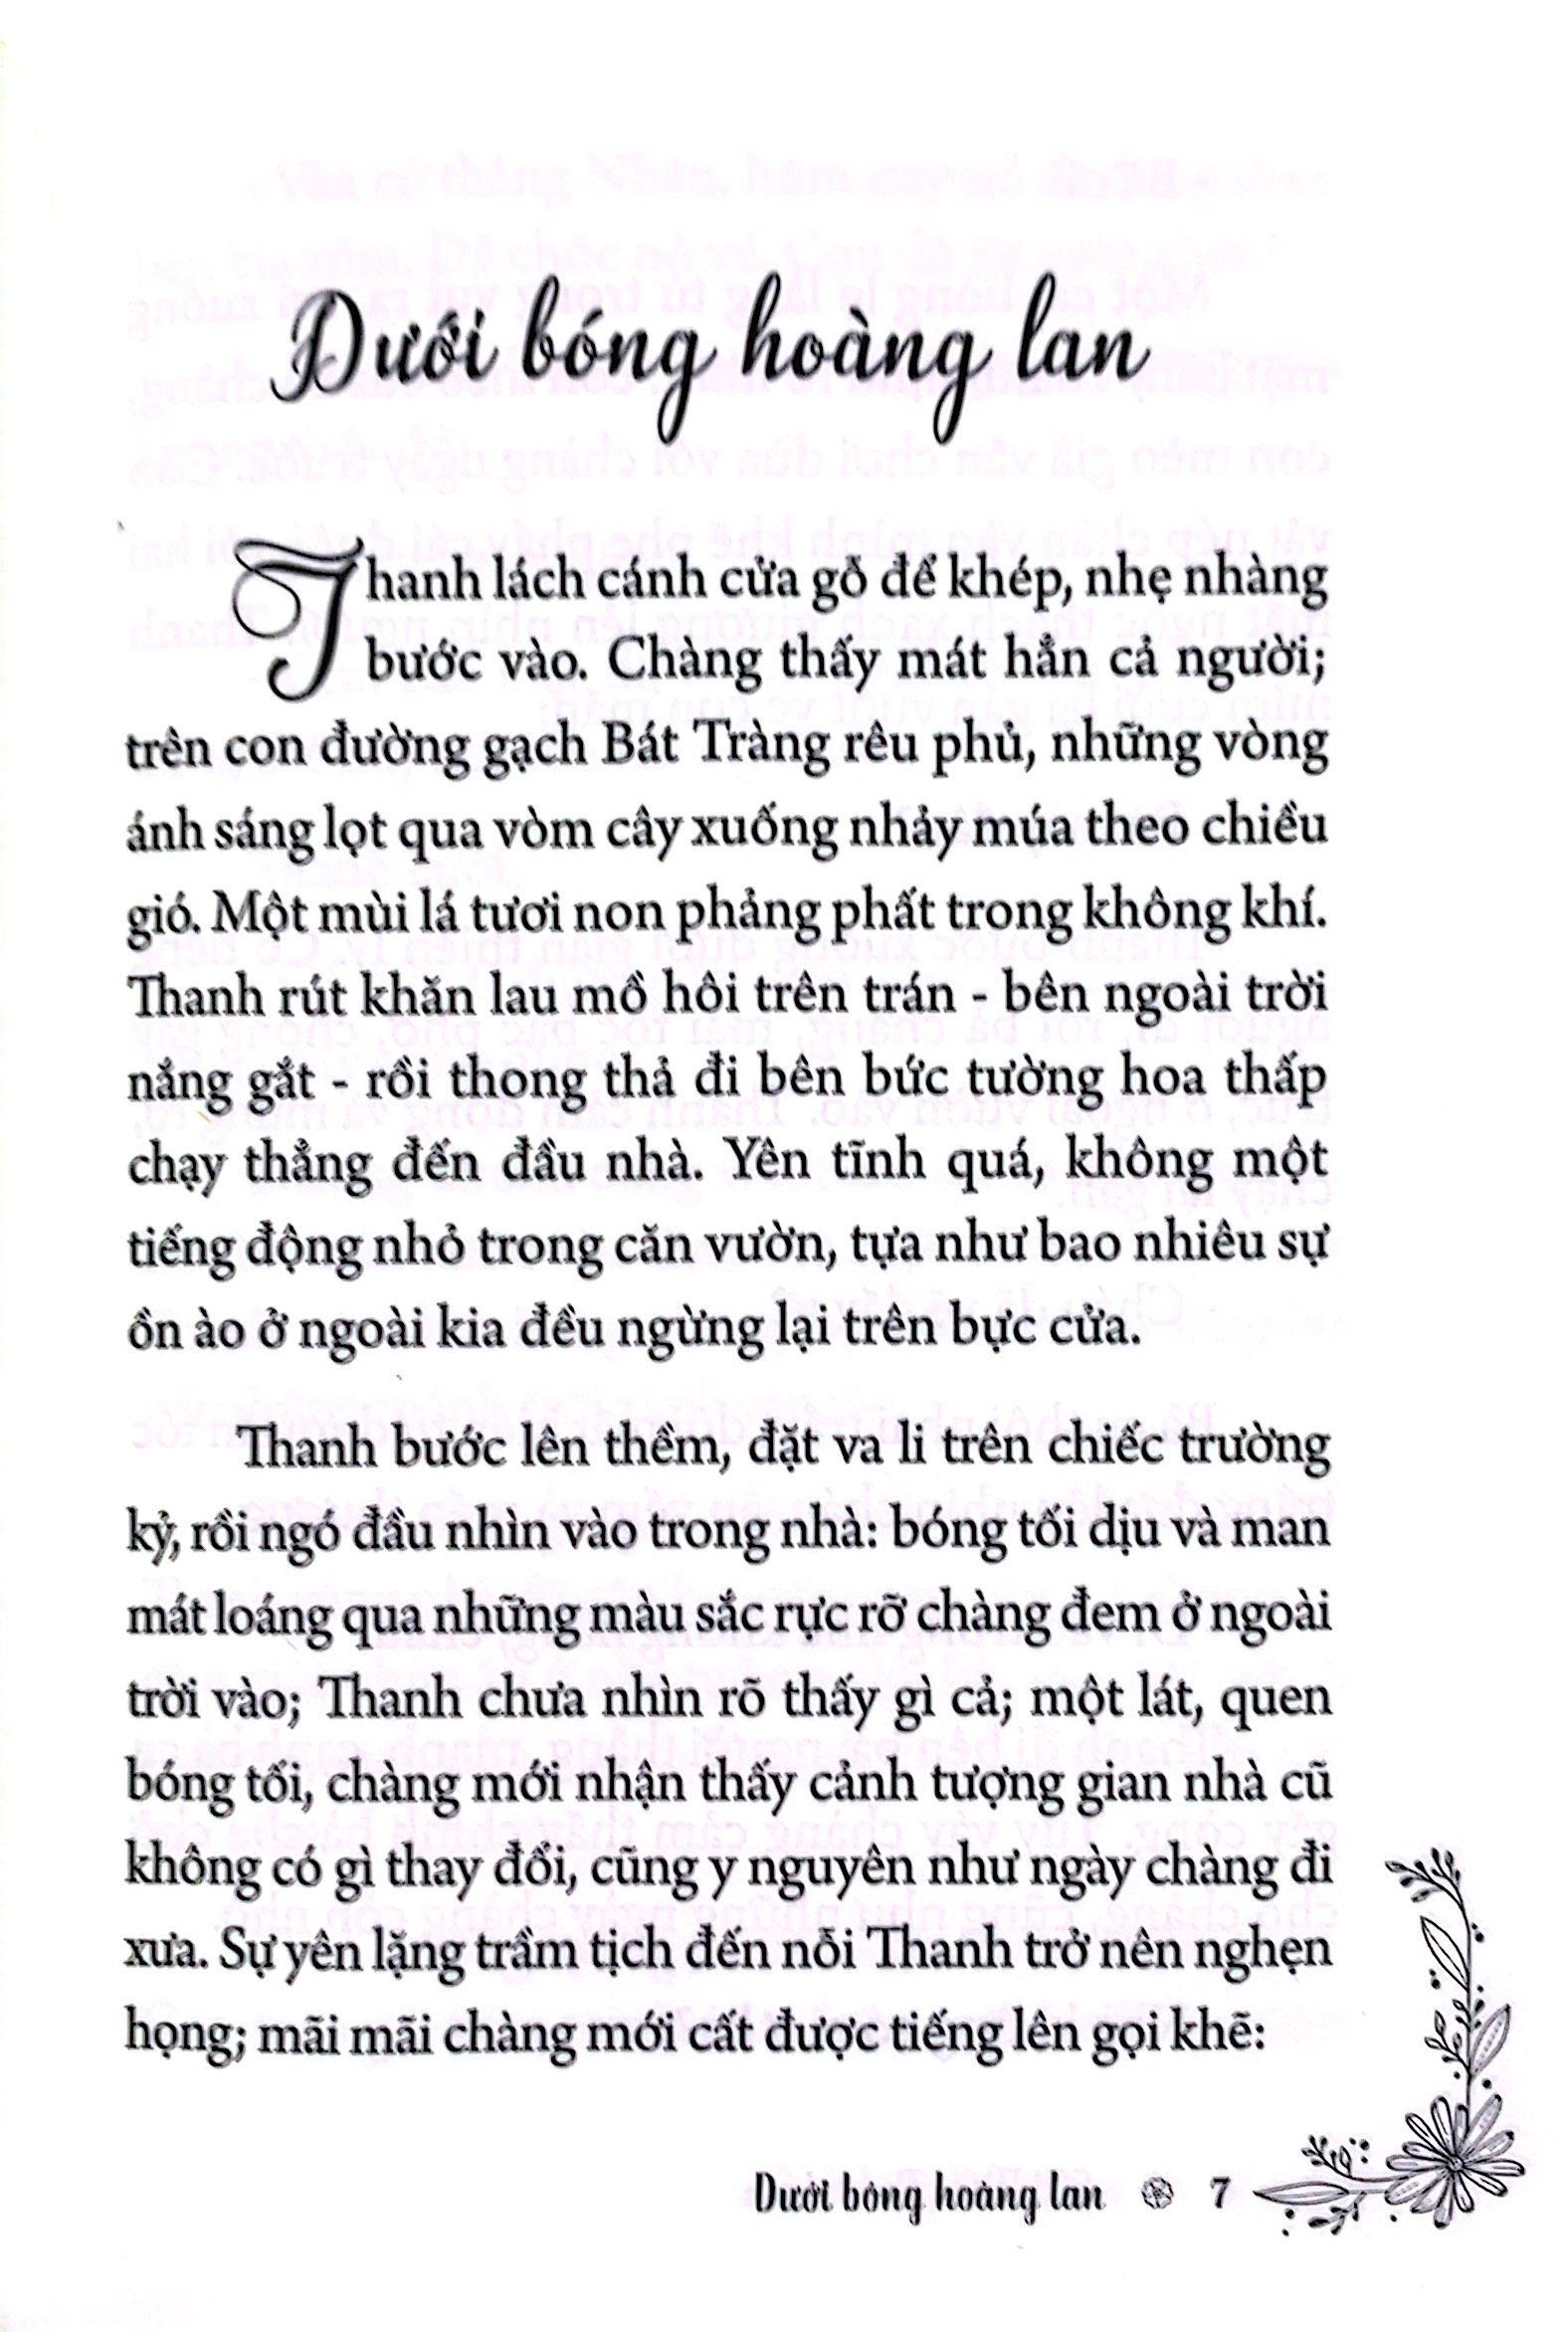 Dưới bóng hoàng lan
Thanh lách cánh cửa gỗ để khép, nhẹ nhàng
bước vào. Chàng thấy mát hẳn cả người;
trên con đường gạch Bát Tràng rêu phủ, những vòng
ánh sáng lọt qua vòm cây xuống nhảy múa theo chiều
gió. Một mùi lá tươi non phảng phất trong không khí.
Thanh rút khăn lau mồ hôi trên trán - bên ngoài trời
nắng gắt - rồi thong thả đi bên bức tường hoa thấp
chạy thẳng đến đầu nhà. Yên tĩnh quá, không một
tiếng động nhỏ trong căn vườn, tựa như bao nhiêu sự
ồn ào ở ngoài kia đều ngừng lại trên bực cửa.
Thanh bước lên thềm, đặt va li trên chiếc trường
kỷ, rồi ngó đầu nhìn vào trong nhà: bóng tối dịu và man
mát loáng qua những màu sắc rực rỡ chàng đem ở ngoài
trời vào; Thanh chưa nhìn rõ thấy gì cả; một lát, quen
bóng tối, chàng mới nhận thấy cảnh tượng gian nhà cũ
không có gì thay đổi, cũng y nguyên như ngày chàng đi
xưa. Sự yên lặng trầm tịch đến nỗi Thanh trở nên nghẹn
họng; mãi mãi chàng mới cất được tiếng lên gọi khẽ:
Dưới bóng hoàng lan 7